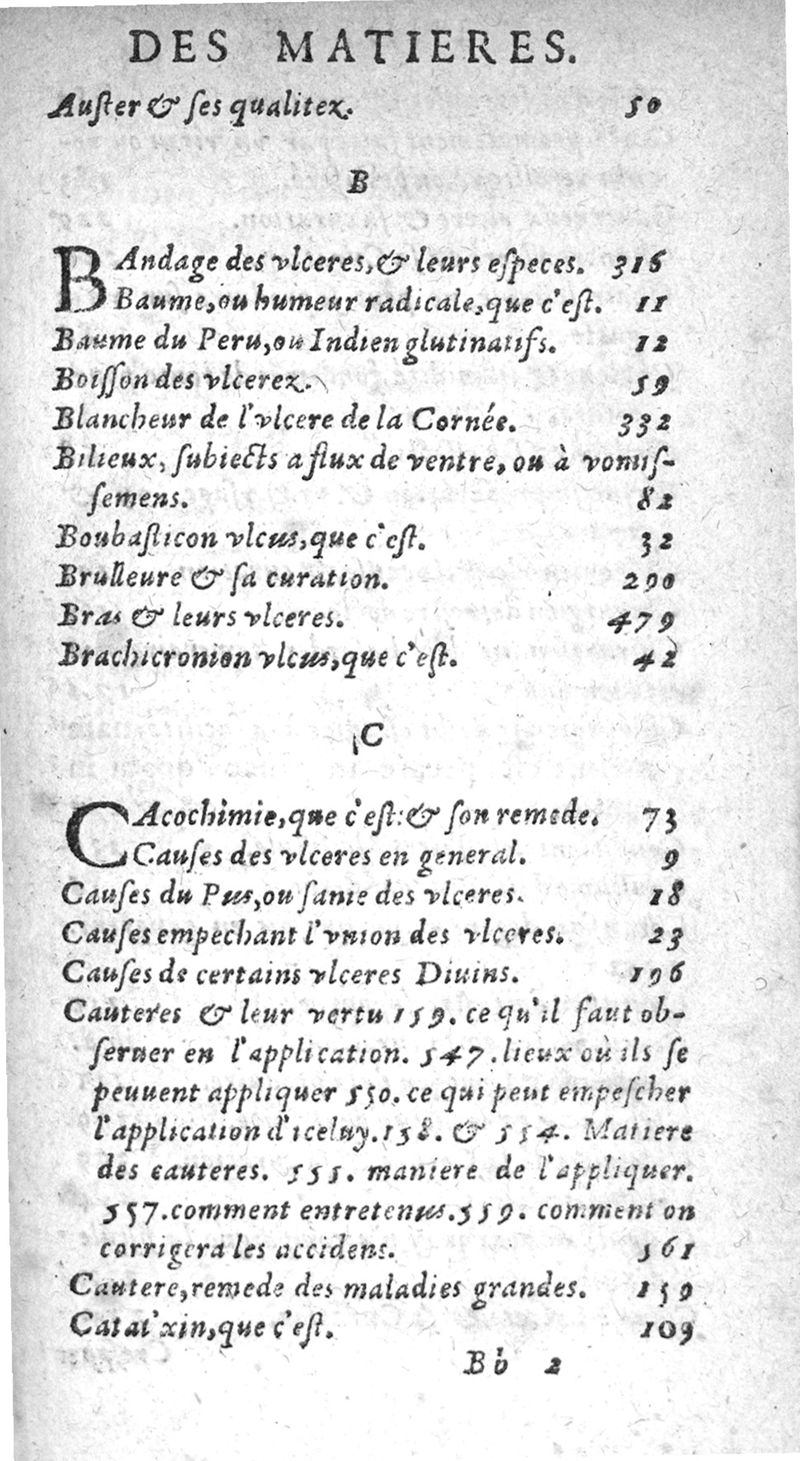 DES MATIERES.
Auſter & ſes qualitez. 50
B
BAndage des vlceres, & leurs eſpeces. 316
Baume, ou humeur radicale, que c'eſt. 11
Baume du Peru, ou Indien glutinatifs. 12
Boiſſon des vlcerez. 59
Blancheur de l'vlcere de la Cornée. 332
Bilieux, ſubiects a flux de ventre, ou à vomiſ-
ſemens. 82
Boubaſticon vlcus, que c'eſt. 32
Brulleure & ſa curation. 290
Bras & leurs vlceres. 479
Brachicronion vlcus, que c'eſt. 42
C
CAcochimie, que c'eſt: & ſon remede. 73
Cauſes des vlceres en general. 9
Cauſes du Pus, ou ſanie des vlceres. 18
Cauſes empechant l'vnion des vlceres. 23
Cauſes de certains vlceres Diuins. 196
Cauteres & leur vertu 159. ce qu'il faut ob-
ſeruer en l'application. 547. lieux où ils ſe
peuuent appliquer 550. ce qui peut empeſcher
l'application d'iceluy. 158. & 554. Matiere
des cauteres. 555. maniere de l'appliquer.
557. comment entretenus. 559. comment on
corrigera les accidens. 561
Cautere, remede des maladies grandes. 159
Catat'xin, que c'eſt. 109
Bb 2